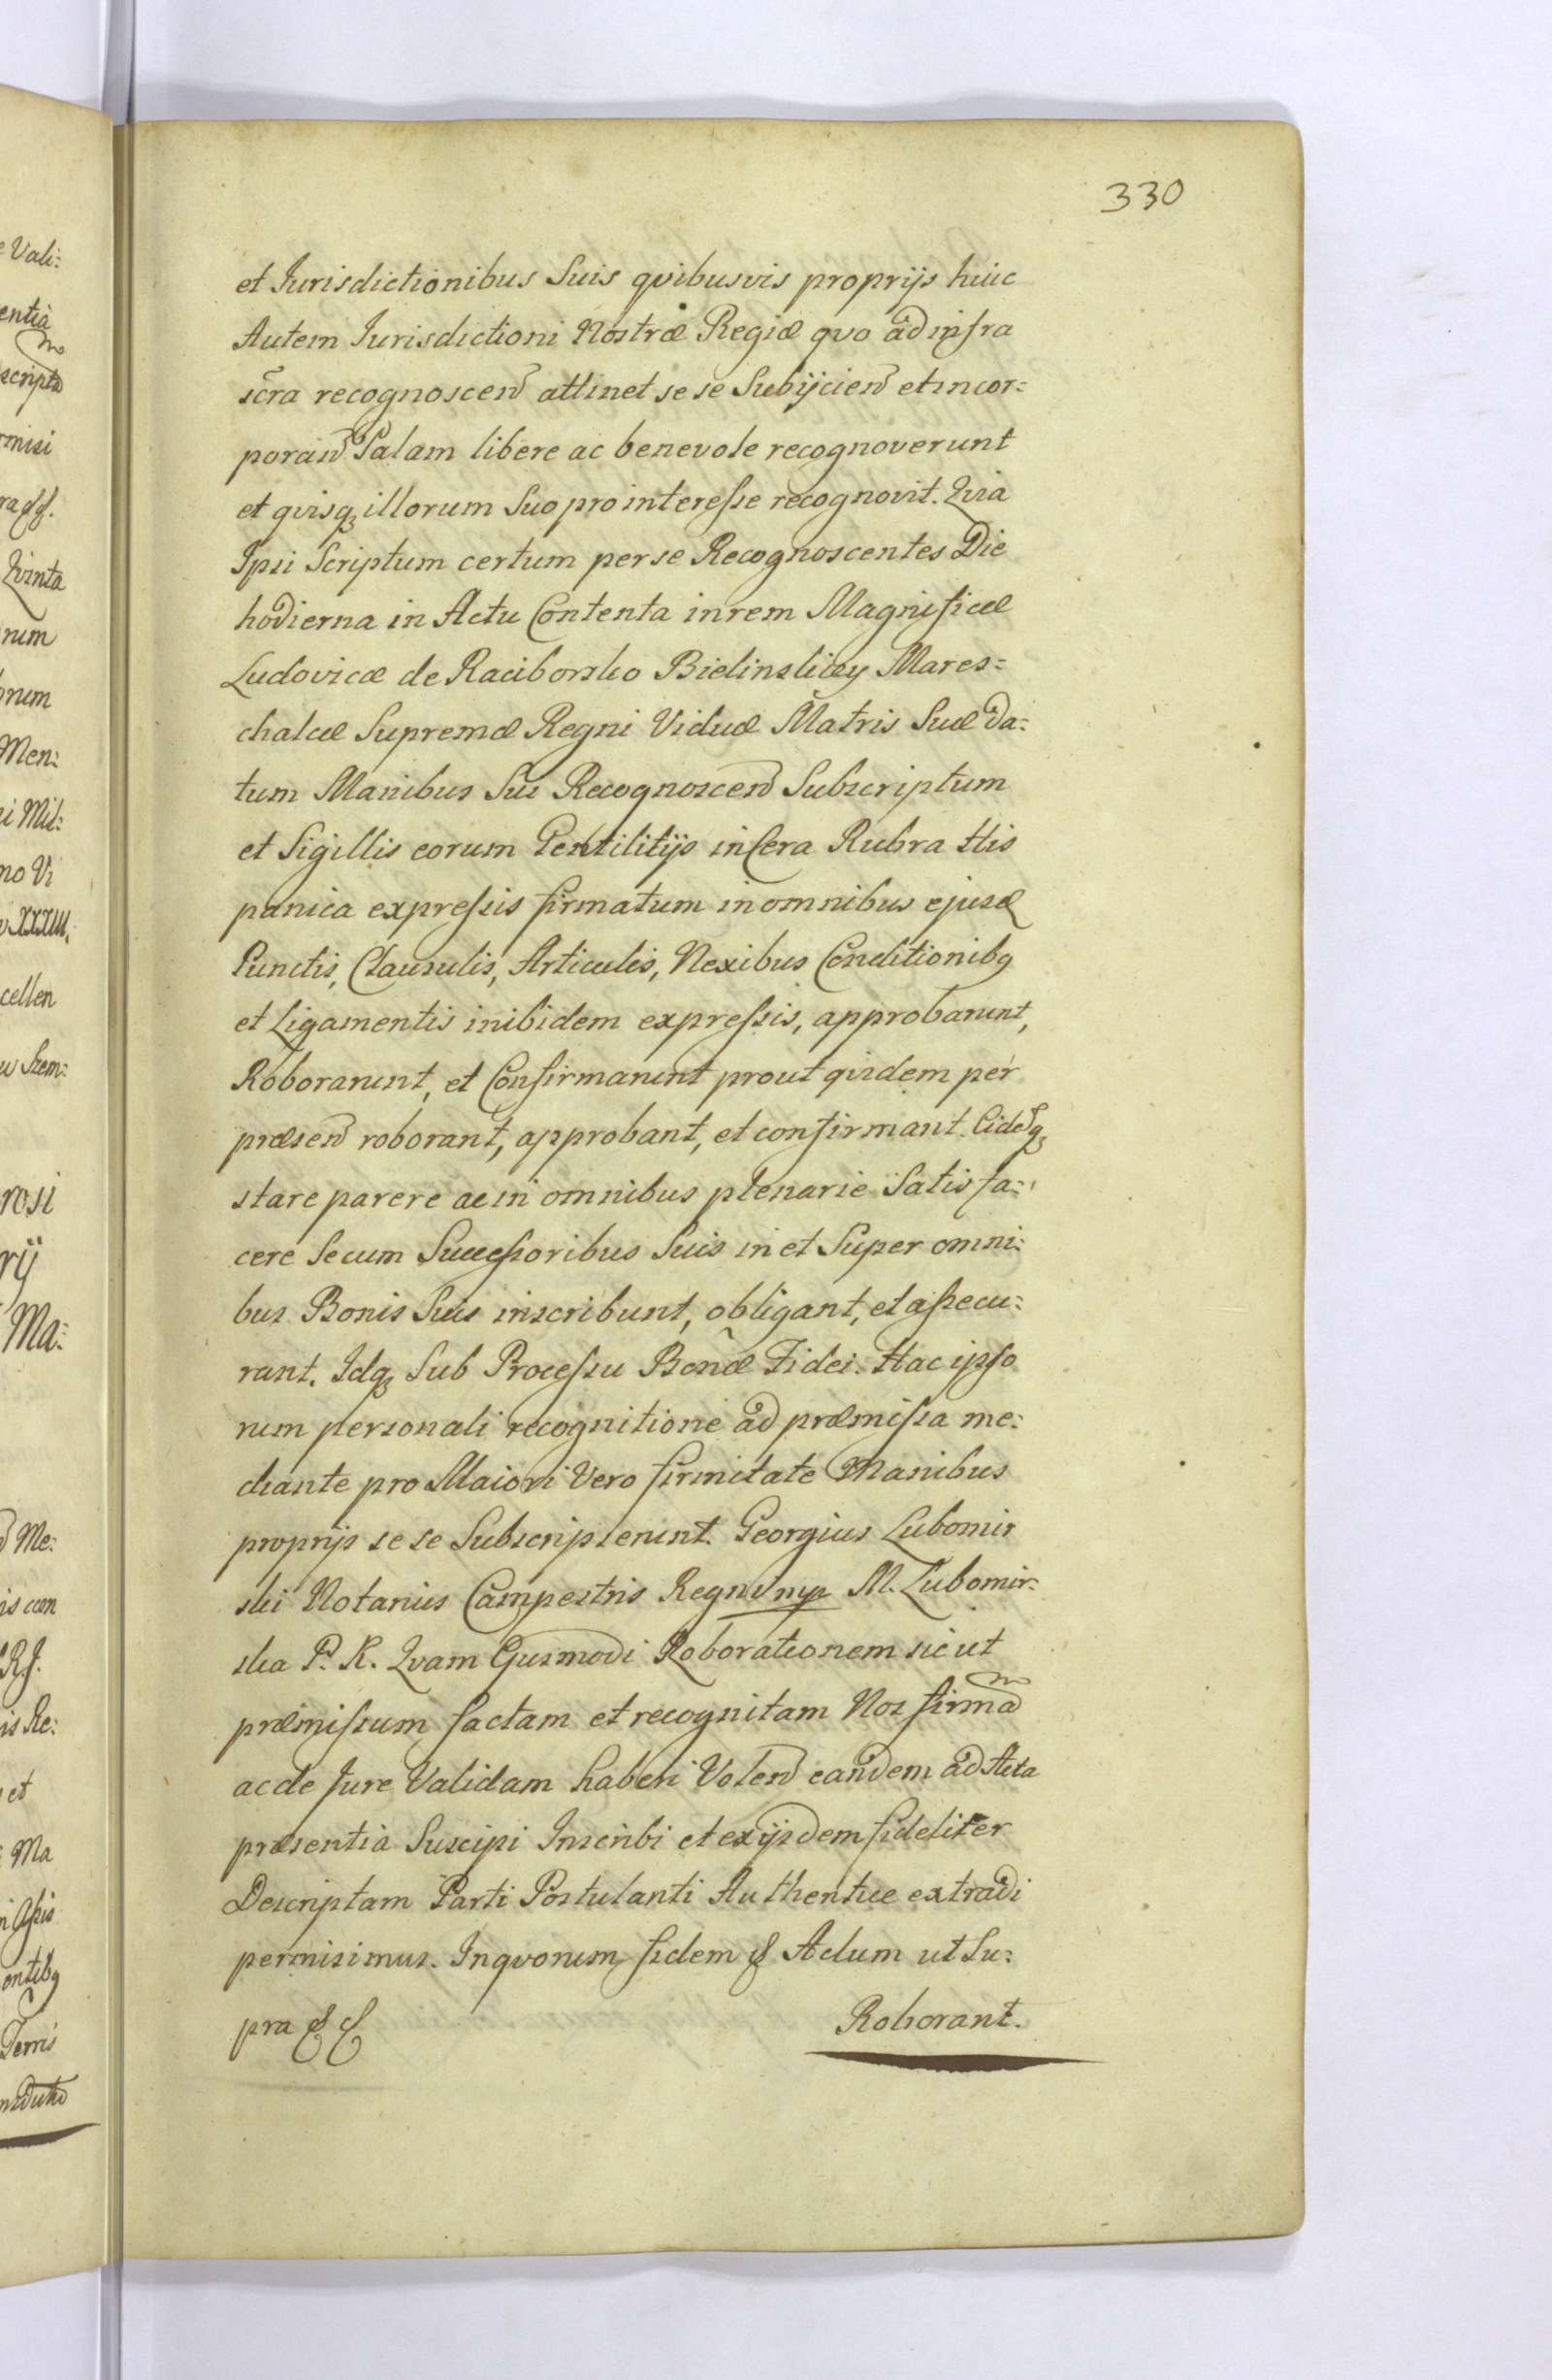 330
et Iurisdictionibus Suis qvibusvis proprijs huic
Autem Iurisdictioni Nostræ Regiæ qvo ad infra
scra recognoscen attinet se se Subijcien et incor=
poran Palam libere ac benevole recognoverunt
et qvisq illorum Suo pro interesse recognovit. Qvia
Ipsi Scriptum certum per se Recognoscentes Die
hodierna in Actu Contenta in rem Magnificæ
Ludovicæ de Raciborsko Bielinskiey Mares=
chalcæ Supremæ Regni Viduæ Matris Suæ da=
tum Manibus Sui Recognoscen Subscriptum
et Sigillis eorum Gentilitijs in Cera Rubra His
panica expressis firmatum in omnibus ejusd
Punctis, Clausulis, Articulis, Nexibus Conditionibq
et Ligamentis inibidem expressis, approbarunt,
Roborarunt, et Confirmarunt prout qvidem per
præsen roborant, approbant, et confirmant. Eideq
stare parere ac in omnibus plenarie Satis fa=
cere Secum Successoribus Suis in et Super omni=
bus Bonis Suis inscribunt, obligant, et assecu=
rant. Idq Sub Processu Bonæ Fidei. Hac ipso
rum personali recognitione ad præmissa me=
diante pro Maiori Vero firmitate Manibus
proprijs se se Subscripserunt. Georgius Lubomir
ski Notarius Campestris Regni mp M. Lubomir=
ska P. K. Qvam Ejusmodi Roborationem sic ut
præmissum factam et recognitam Nos firma
ac de Jure Validam haberi Volen eandem ad Acta
præsentia Suscipi Inscribi et ex ijsdem fideliter
Descriptam Parti Postulanti Authentice extradi
permisimus. In qvorum fidem & Actum ut Su=
pra & &
Roborant.